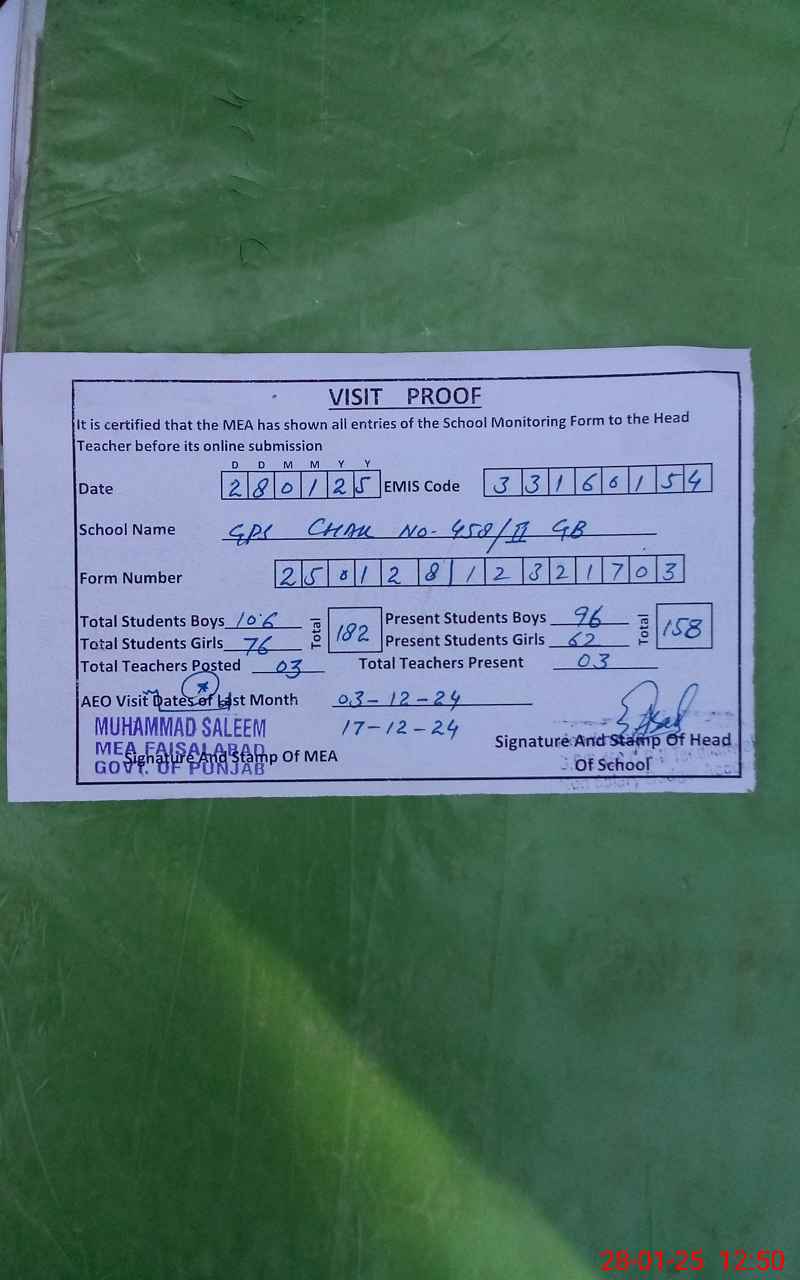 VISIT PROOF
It is certified that the MEA has shown all entries of the School Monitoring Form to the Head
Teacher before its online submission
D D M M Y Y
Date 2 8 0 1 2 5 EMIS Code 3 3 1 6 0 1 5 4
School Name GPS CHAK NO- 458/II GB
Form Number 2 5 0 1 2 8 1 2 3 2 1 7 0 3
Total Students Boys 106 Total 182 Present Students Boys 96 Total 158
Total Students Girls 76 Present Students Girls 62
Total Teachers Posted 03 Total Teachers Present 03
AEO Visit Dates of Last Month 03-12-24
17-12-24
MUHAMMAD SALEEM
MEA FAISALABAD
GOVT. OF PUNJAB
Signature And Stamp Of MEA
Signature And Stamp Of Head
Of School
28-01-25 12:50